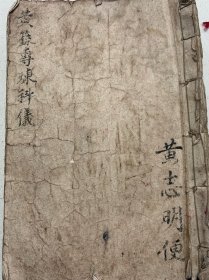 黄籙煉科儀
黄志明便